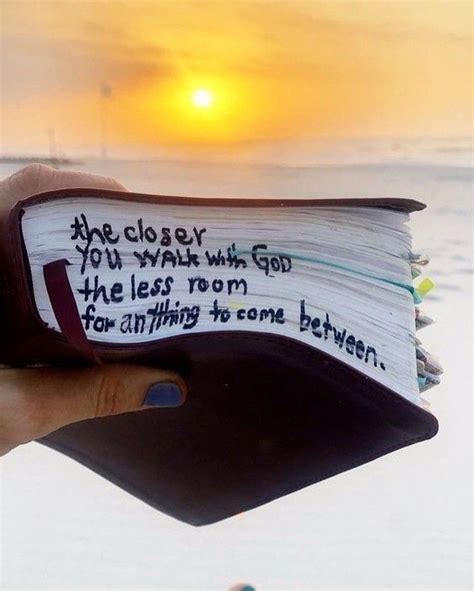 the closer
You WALK with GOD
the less room
for anything to come between.